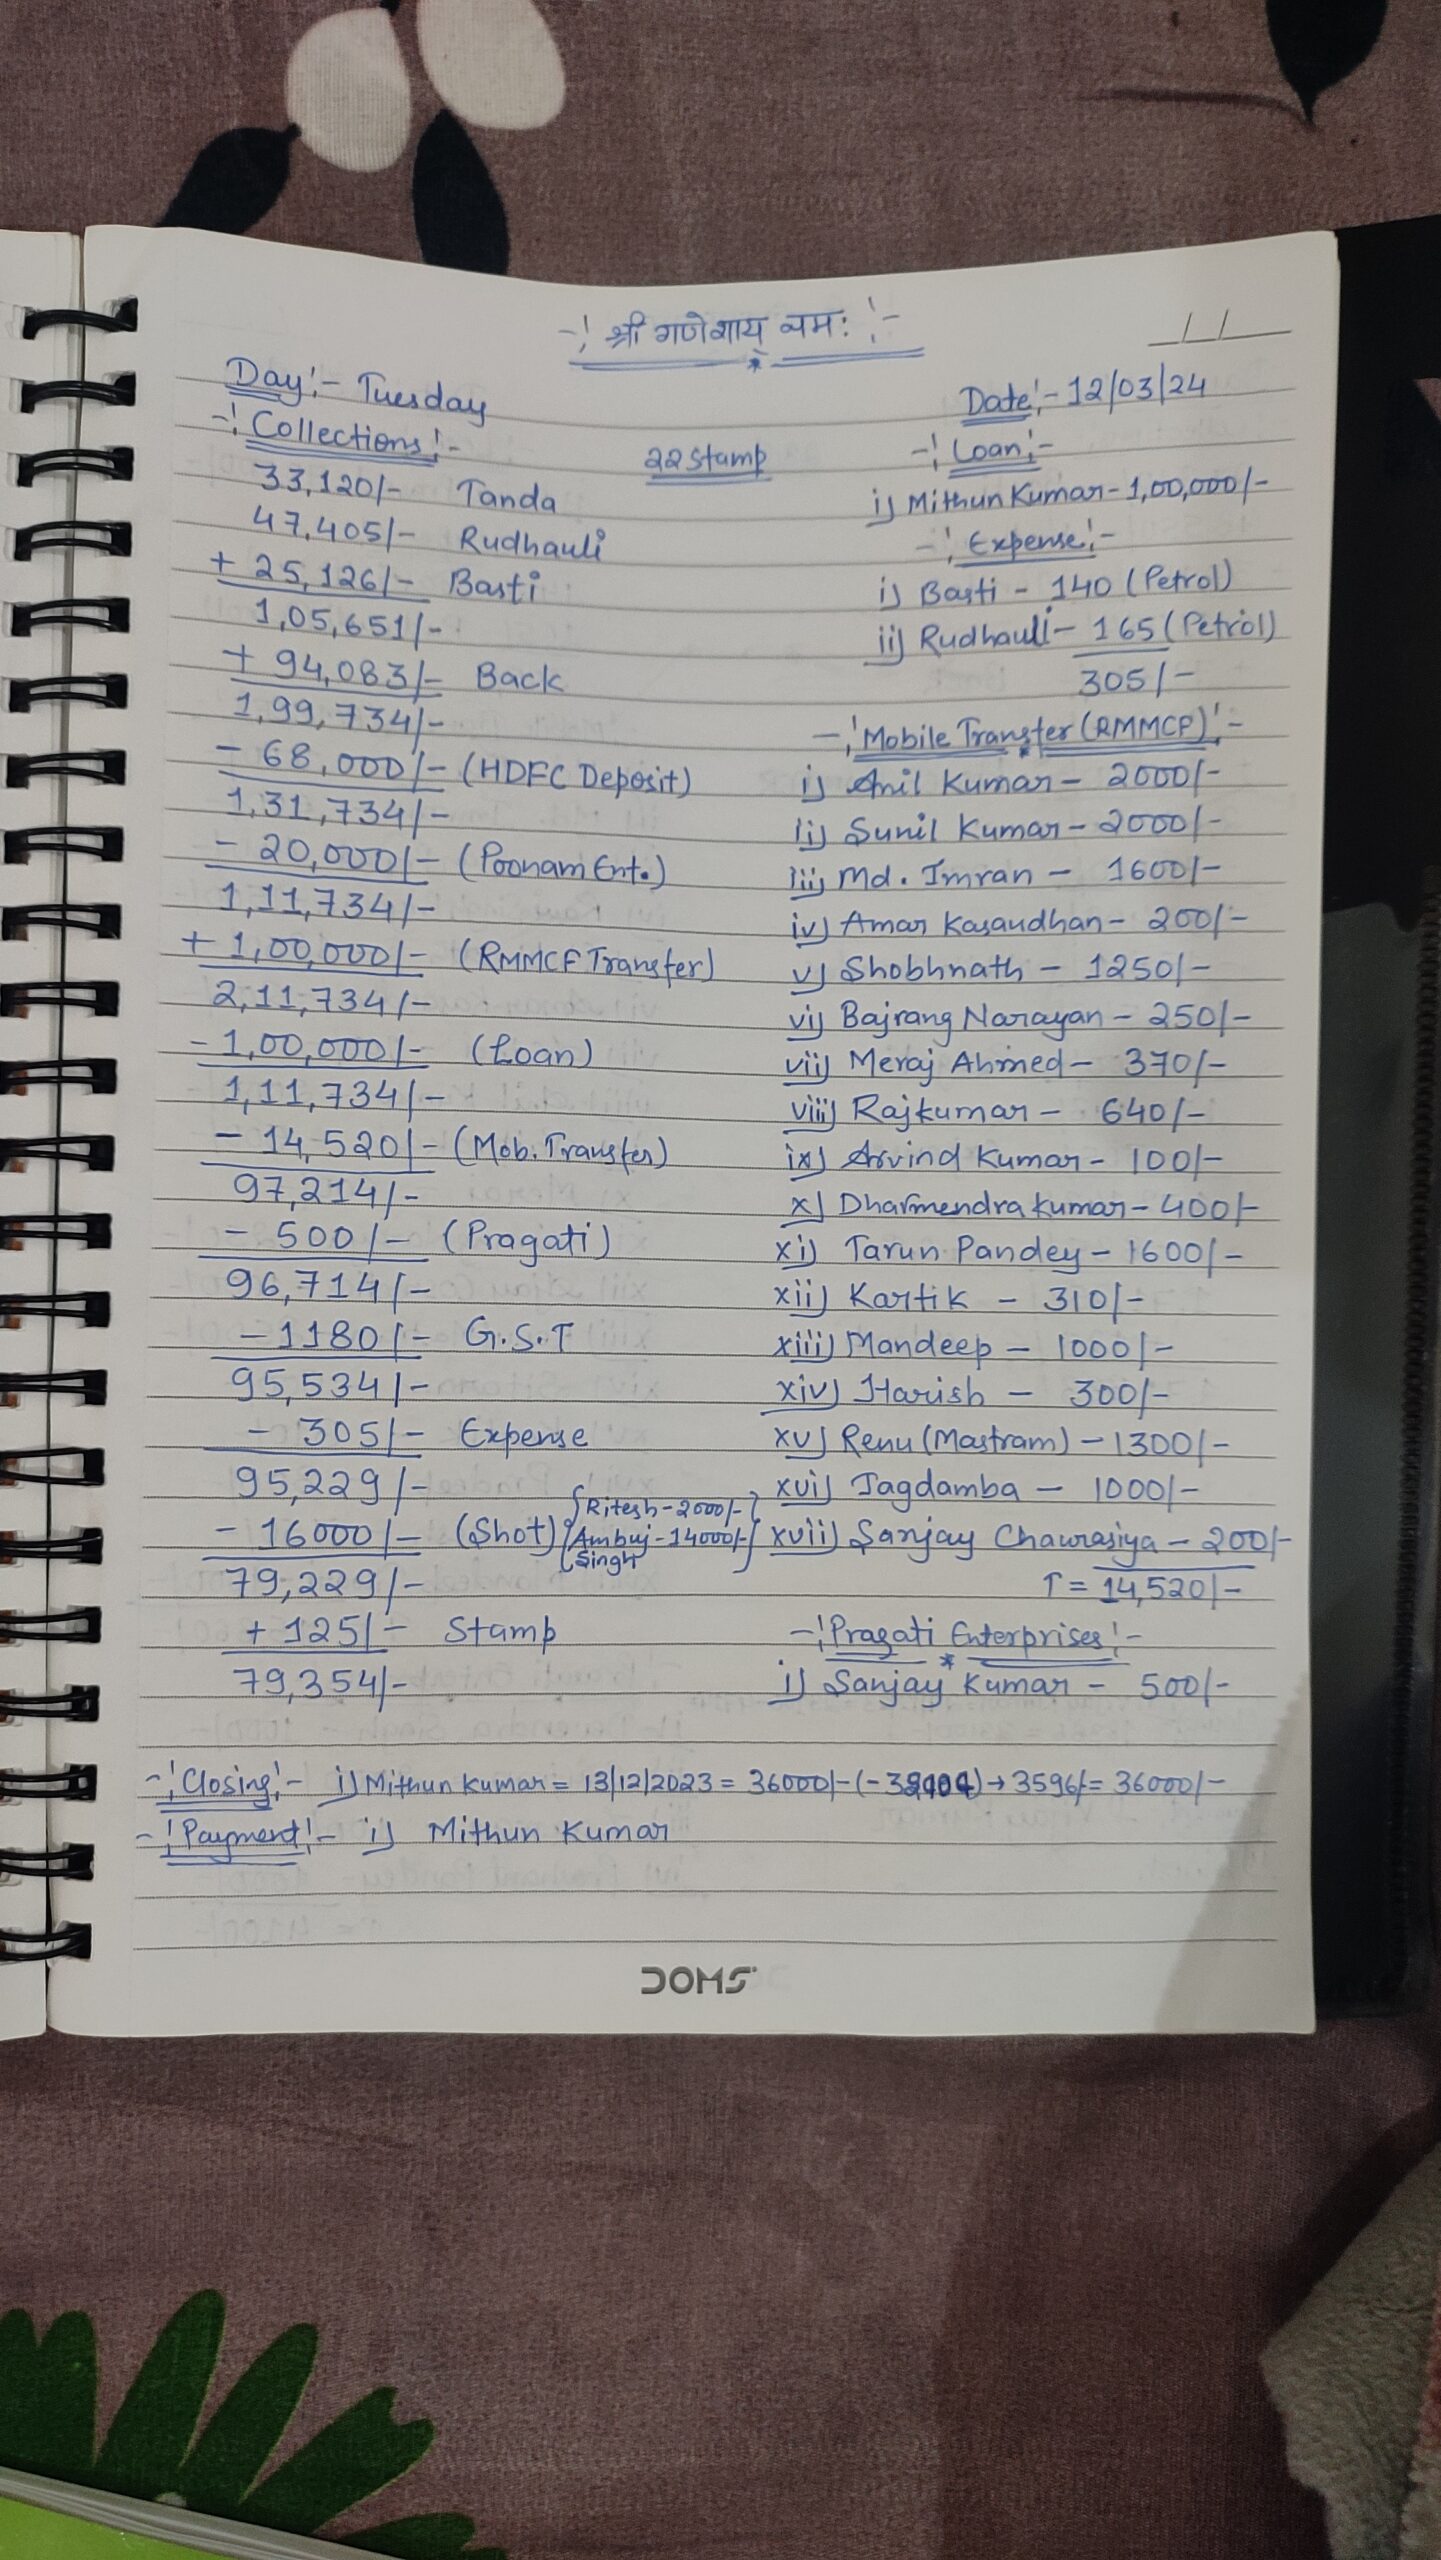 -! श्री गणेशाय नमः !-
Day:- Tuesday
Date:- 12/03/24
-! Collections!-
22 stamp
33,120/- Tanda
47,405/- Rudhauli
+ 25,126/- Basti
1,05,651/-
+ 94,083/- Back
1,99,734/-
- 68,000/- (HDFC Deposit)
1,31,734/-
- 20,000/- (Poonam Ent.)
1,11,734/-
+ 1,00,000/- (RMMCF Transfer)
2,11,734/-
- 1,00,000/- (Loan)
1,11,734/-
- 14,520/- (Mob. Transfer)
97,214/-
- 500/- (Pragati)
96,714/-
- 1180/- G.S.T
95,534/-
- 305/- Expense
95,229/-
- 16000/- (Shot) {Ritesh - 2000/-
Ambuj - 14000/-
Singh}
79,229/-
+ 125/- Stamp
79,354/-
-! Loan!-
i) Mithun Kumar - 1,00,000/-
-! Expense!-
i) Basti - 140 (Petrol)
ii) Rudhauli - 165 (Petrol)
305/-
-! Mobile Transfer (RMMCF)!-
i) Anil Kumar - 2000/-
ii) Sunil Kumar - 2000/-
iii) Md. Imran - 1600/-
iv) Amar Kasaudhan - 200/-
v) Shobhnath - 1250/-
vi) Bajrang Narayan - 250/-
vii) Meraj Ahmed - 370/-
viii) Rajkumar - 640/-
ix) Arvind Kumar - 100/-
x) Dharmendra Kumar - 400/-
xi) Tarun Pandey - 1600/-
xii) Kartik - 310/-
xiii) Mandeep - 1000/-
xiv) Harish - 300/-
xv) Renu (Mastram) - 1300/-
xvi) Jagdamba - 1000/-
xvii) Sanjay Chaurasiya - 200/-
T = 14,520/-
-! Pragati Enterprises!-
i) Sanjay Kumar - 500/-
-! Closing!- i) Mithun Kumar = 13/12/2023 = 36000/- → 3596/- = 36000/-
-! Payment!- i) Mithun Kumar
DOMS